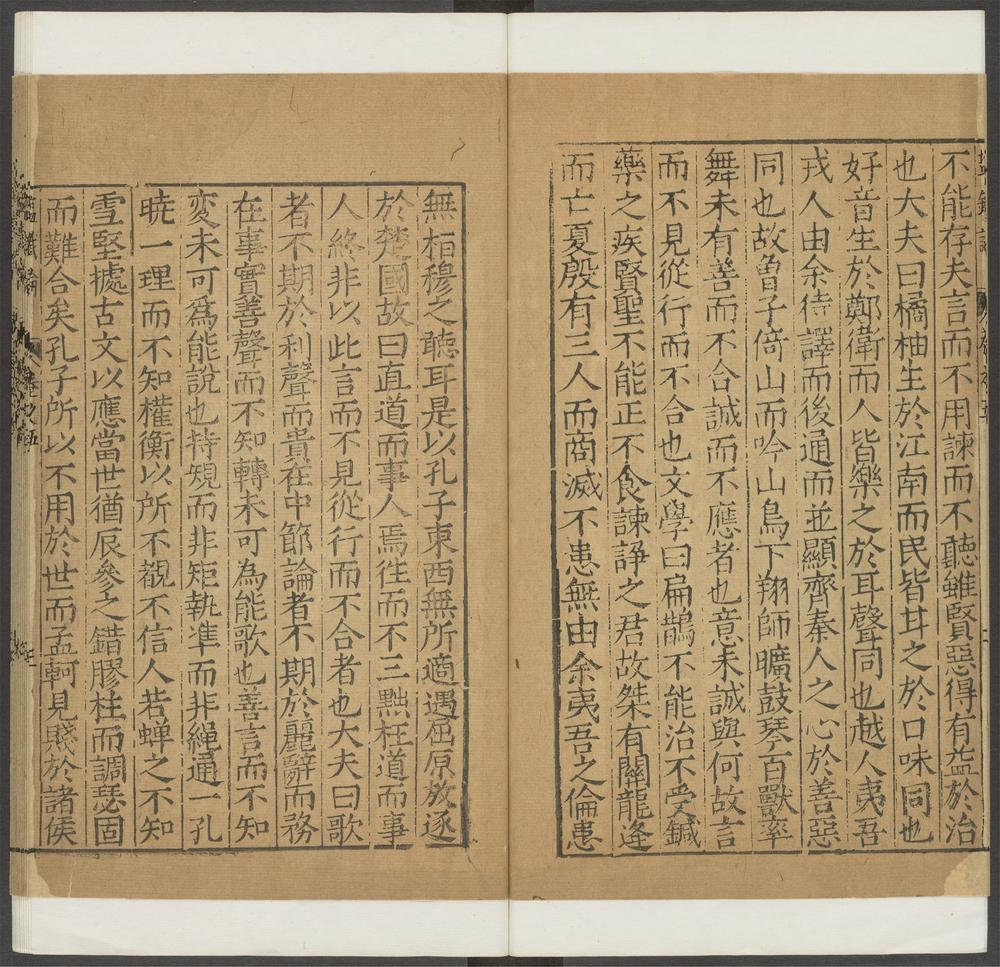 不能存夫言而不用諫而不聽雖賢惡得有益於治
也大夫曰橘柚生於江南而民皆甘之於口味同也
好音生於鄭衛而人皆樂之於耳聲同也越人夷吾
戎人由余待譯而後通而並顯齊秦人之心於善惡
同也故曾子倚山而吟山鳥下翔師曠鼓琴百獸率
舞未有善而不合誠而不應者也意未誠與何故言
而不見從行而不合也文學曰扁鵲不能治不受鍼
藥之疾賢聖不能正不食諫諍之君故桀有關龍逢
而亡夏殷有三人而商滅不患無由余夷吾之倫患
無柏穆之聽耳是以孔子東西無所適遇屈原放逐
於楚國故曰直道而事人焉往而不三黜枉道而事
人終非以此言而不見從行而不合者也大夫曰歌
者不期於利聲而貴在中節論者不期於麗辭而務
在事實善聲而不知轉未可為能歌也善言而不知
變未可爲能說也持規而非矩執凖而非繩通一孔
曉一理而不知權衡以所不覩不信人若蟬之不知
雪堅據古文以應當世猶辰參之錯膠柱而調瑟固
而難合矣孔子所以不用於世而孟軻見賤於諸侯